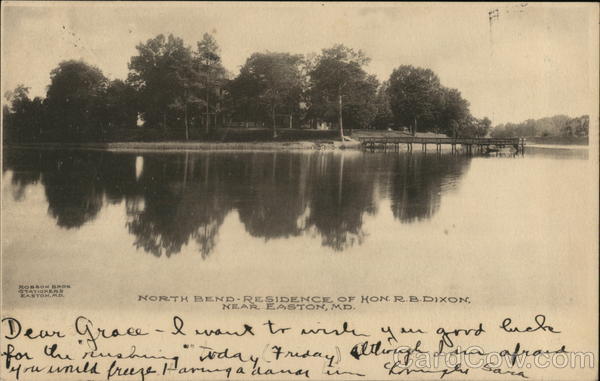 ROBSON BROS
STATIONERS
EASTON, MD.
NORTH BEND - RESIDENCE OF HON. R. B. DIXON,
NEAR EASTON, MD.
Dear Grace - I want to wish you good luck
for the "rushing" today (Friday) Although I am afraid
you would freeze Having a dance in Love Sara
CardCow.com